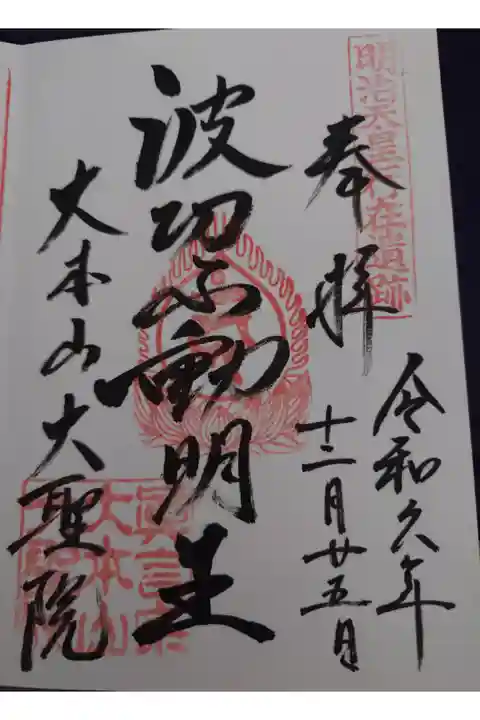 明治天皇行在遺跡
奉拝
令和 年
十二月廿五日
波切不動明王
大本山大聖院
眞言宗
大本山